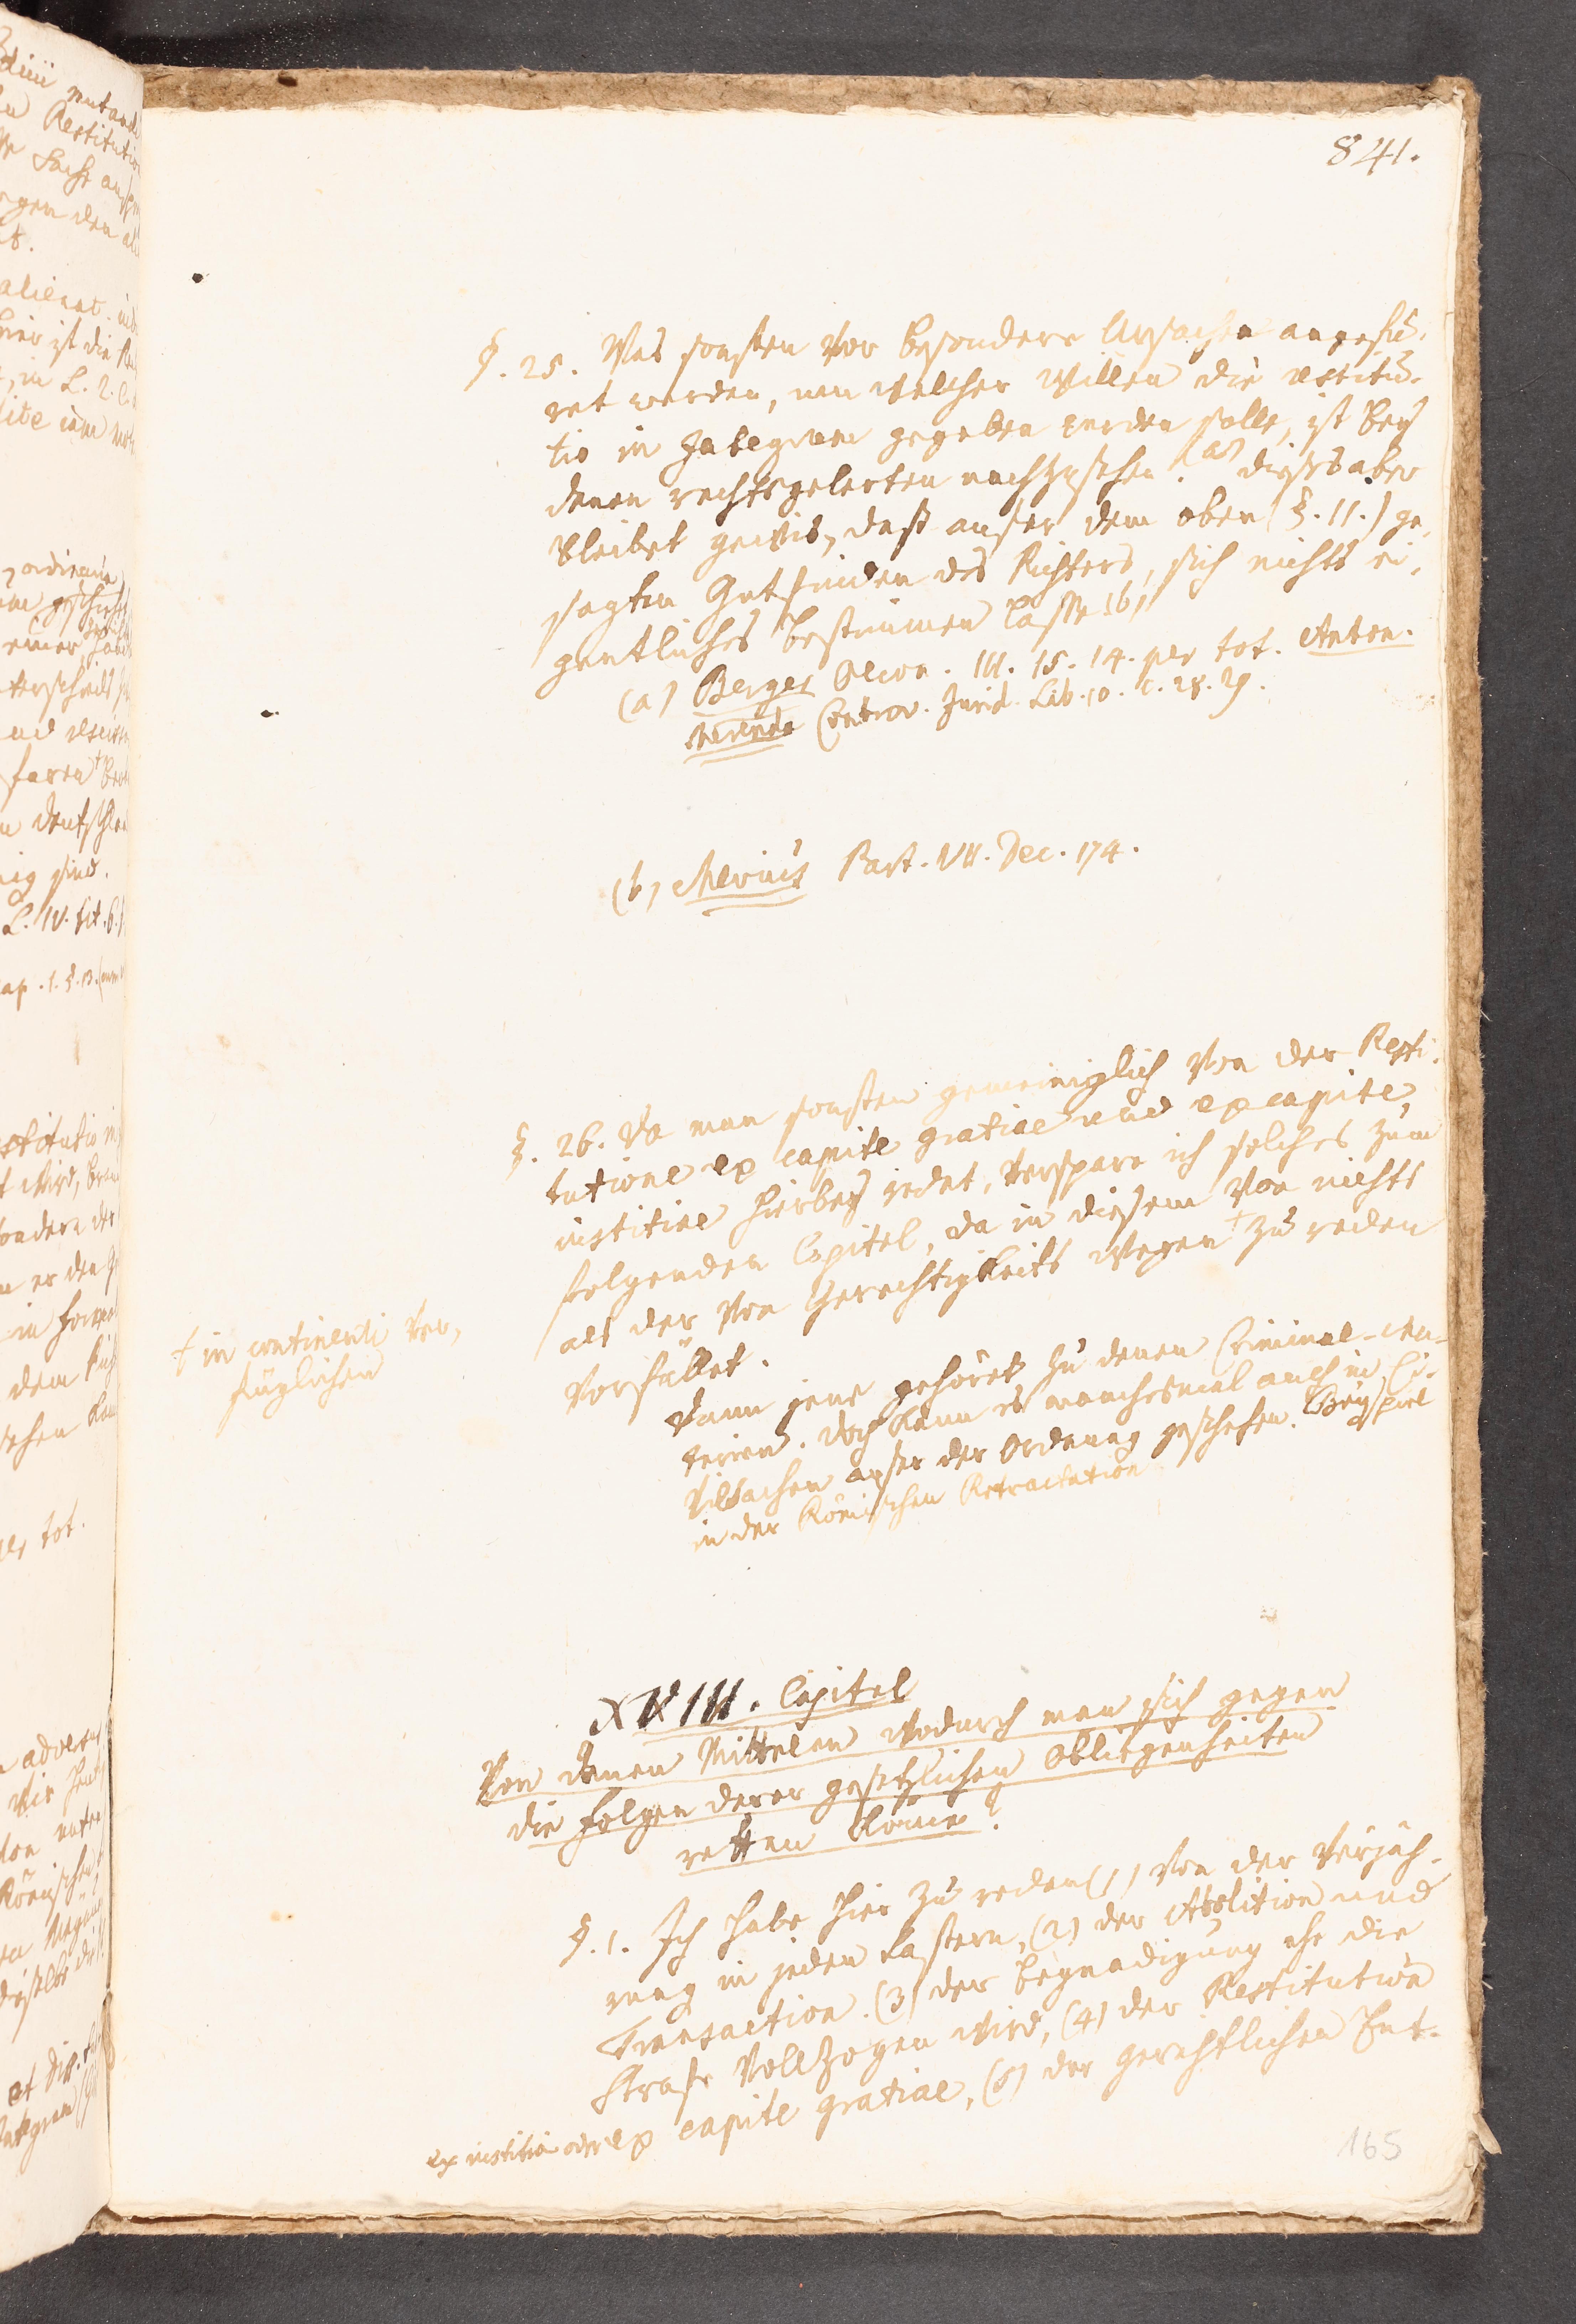 841.
§. 25. Was sonsten vor besondere Ursachen angefü-
ret werden, um welcher willen die restitu-
tio in Integrum gegeben werden solle, ist bey
denen rechtsgelerten nachzusehen. (a) dieses aber
bleibet gewis, daß auser dem oben (§. 11.) ge-
sagten Gutfinden des Richters, sich nichts ei-
gentliches bestimmen lasse (b)
(a) Berger Oecon. III. 15. 14. per tot. Anton.
Merenda Controv. Jurid. Lib. 10. C. 28. 29.
(b) Mevius Part. VII. Dec. 174.
§. 26. Da man sonsten gemeiniglich von der Resti-
tutione ex capite gratiae und ex capite
iustitiae hierbey redet, verspare ich solches zum
folgenden Capitel, da in diesem von nichts
als der von Gerechtigkeits wegen † zu reden
vorfället.
† in continenti ver-
füglichen
Dann jene gehöret zu denen Criminal-Ma-
terien. Doch kann es manchesmal auch in Ci-
vilsachen auser der Ordnung geschehen. Beyspiel
in der Römischen Retractation
XVIII. Capitel
Von denen Mittelen wodurch man sich gegen
die Folgen derer gesetzlichen Obliegenheiten
retten könne?
§. 1. Ich habe hier zu reden (1) von der Verjäh-
rung in jeden Lastern, (2) der Abolition und
Transaction. (3) der Begnadigung ehe die
Strafe vollzogen wird, (4) der Restitution
ex iustitia oder ex capite gratiae, (5) der gerichtlichen Ent-
165